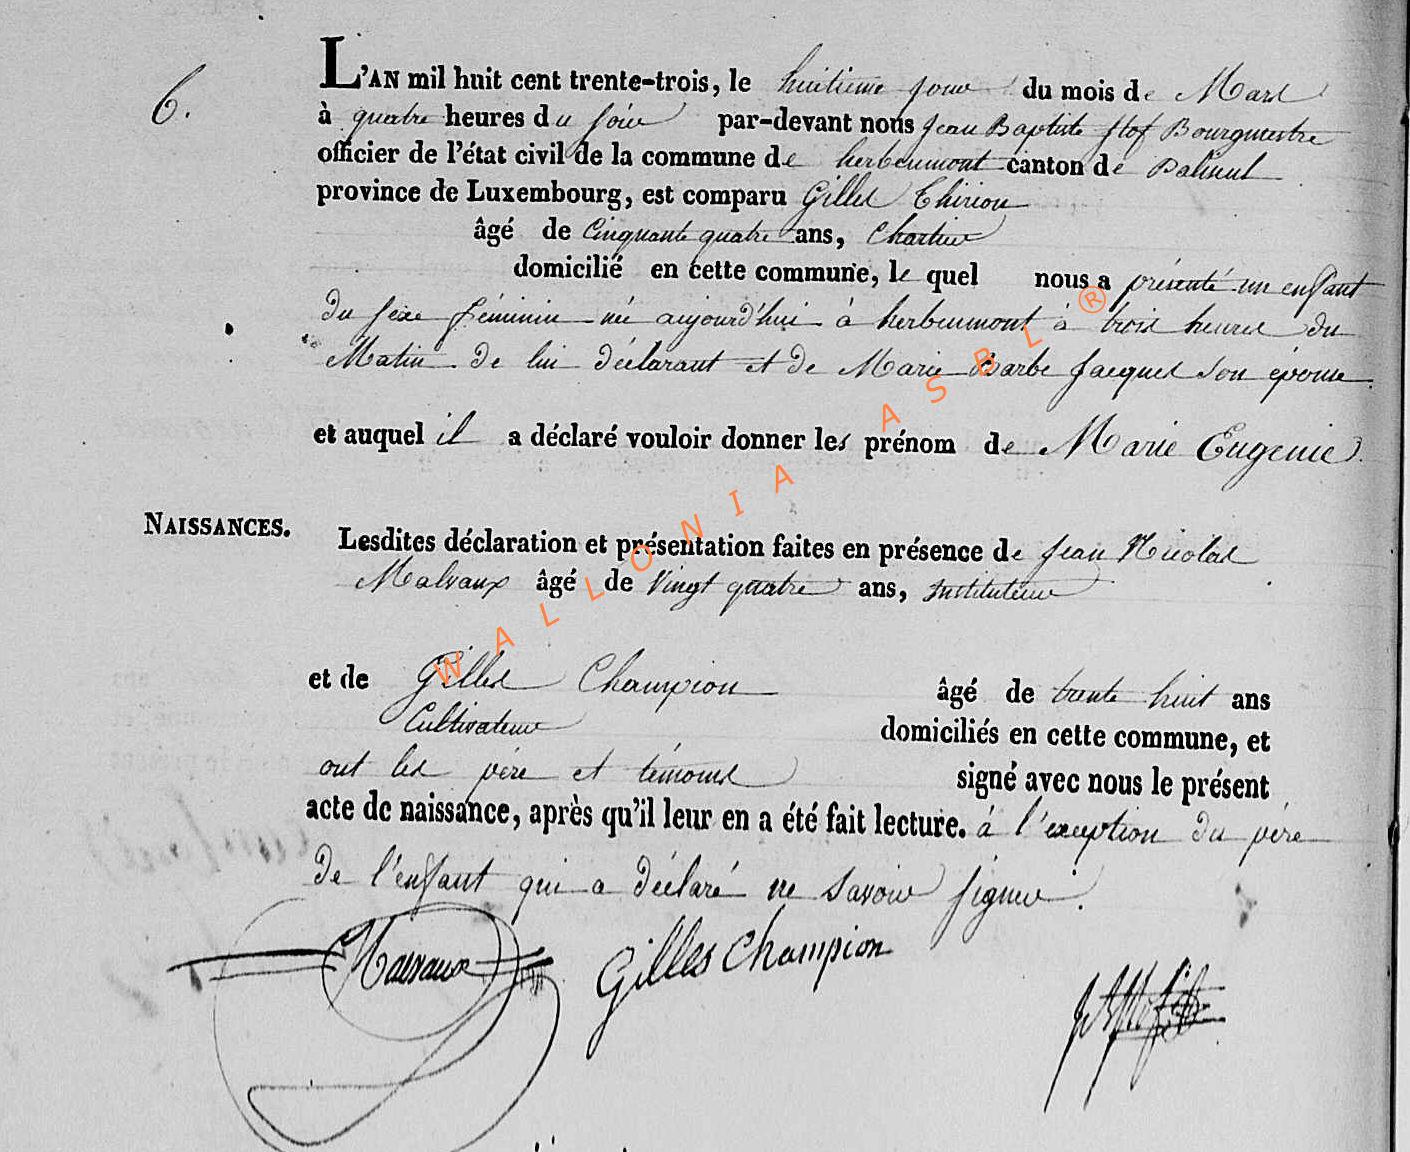 6.
L'AN mil huit cent trente-trois, le huitieme jour du mois de Mars
à quatre heures du soir par-devant nous Jean Baptiste Hof Bourgmestre
officier de l'état civil de la commune de herbeumont canton de Paliseul
province de Luxembourg, est comparu Gilles Thirion
âgé de Cinquante quatre ans, Chartier
domicilié en cette commune, le quel nous a présenté un enfant
du sexe féminin né aujourd'hui à herbeumont à trois heures du
Matin de lui déclarant et de Marie Barbe Jacques son épouse.
et auquel il a déclaré vouloir donner les prénom de Marie Eugenie
NAISSANCES.
Lesdites déclaration et présentation faites en présence de Jean Nicolas
Malvaux âgé de Vingt quatre ans, Instituteur
et de Gilles Champion âgé de trente huit ans
Cultivateur domiciliés en cette commune, et
ont les père et témoins signé avec nous le présent
acte de naissance, après qu'il leur en a été fait lecture. à l'exception du père
de l'enfant qui a déclaré ne savoir signer.
Malvaux Gilles Champion
WALLONIA ASBL ®